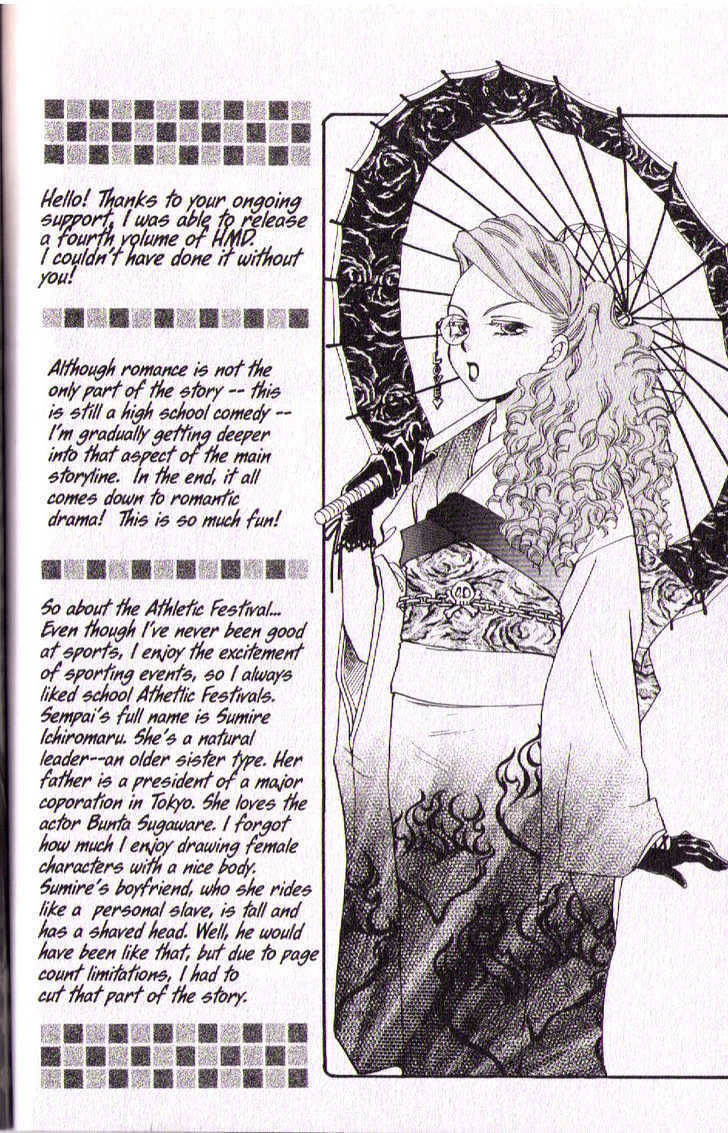 Hello! Thanks to your ongoing
support, I was able to release
a fourth volume of HMD.
I couldn't have done it without
you!
Although romance is not the
only part of the story -- this
is still a high school comedy --
I'm gradually getting deeper
into that aspect of the main
storyline. In the end, it all
comes down to romantic
drama! This is so much fun!
So about the Athletic Festival...
Even though I've never been good
at sports, I enjoy the excitement
of sporting events, so I always
liked school Athetlic Festivals.
Sempai's full name is Sumire
Ichiromaru. She's a natural
leader--an older sister type. Her
father is a president of a major
coporation in Tokyo. She loves the
actor Bunta Sugaware. I forgot
how much I enjoy drawing female
characters with a nice body.
Sumire's boyfriend, who she rides
like a personal slave, is tall and
has a shaved head. Well, he would
have been like that, but due to page
count limitations, I had to
cut that part of the story.
LOVE